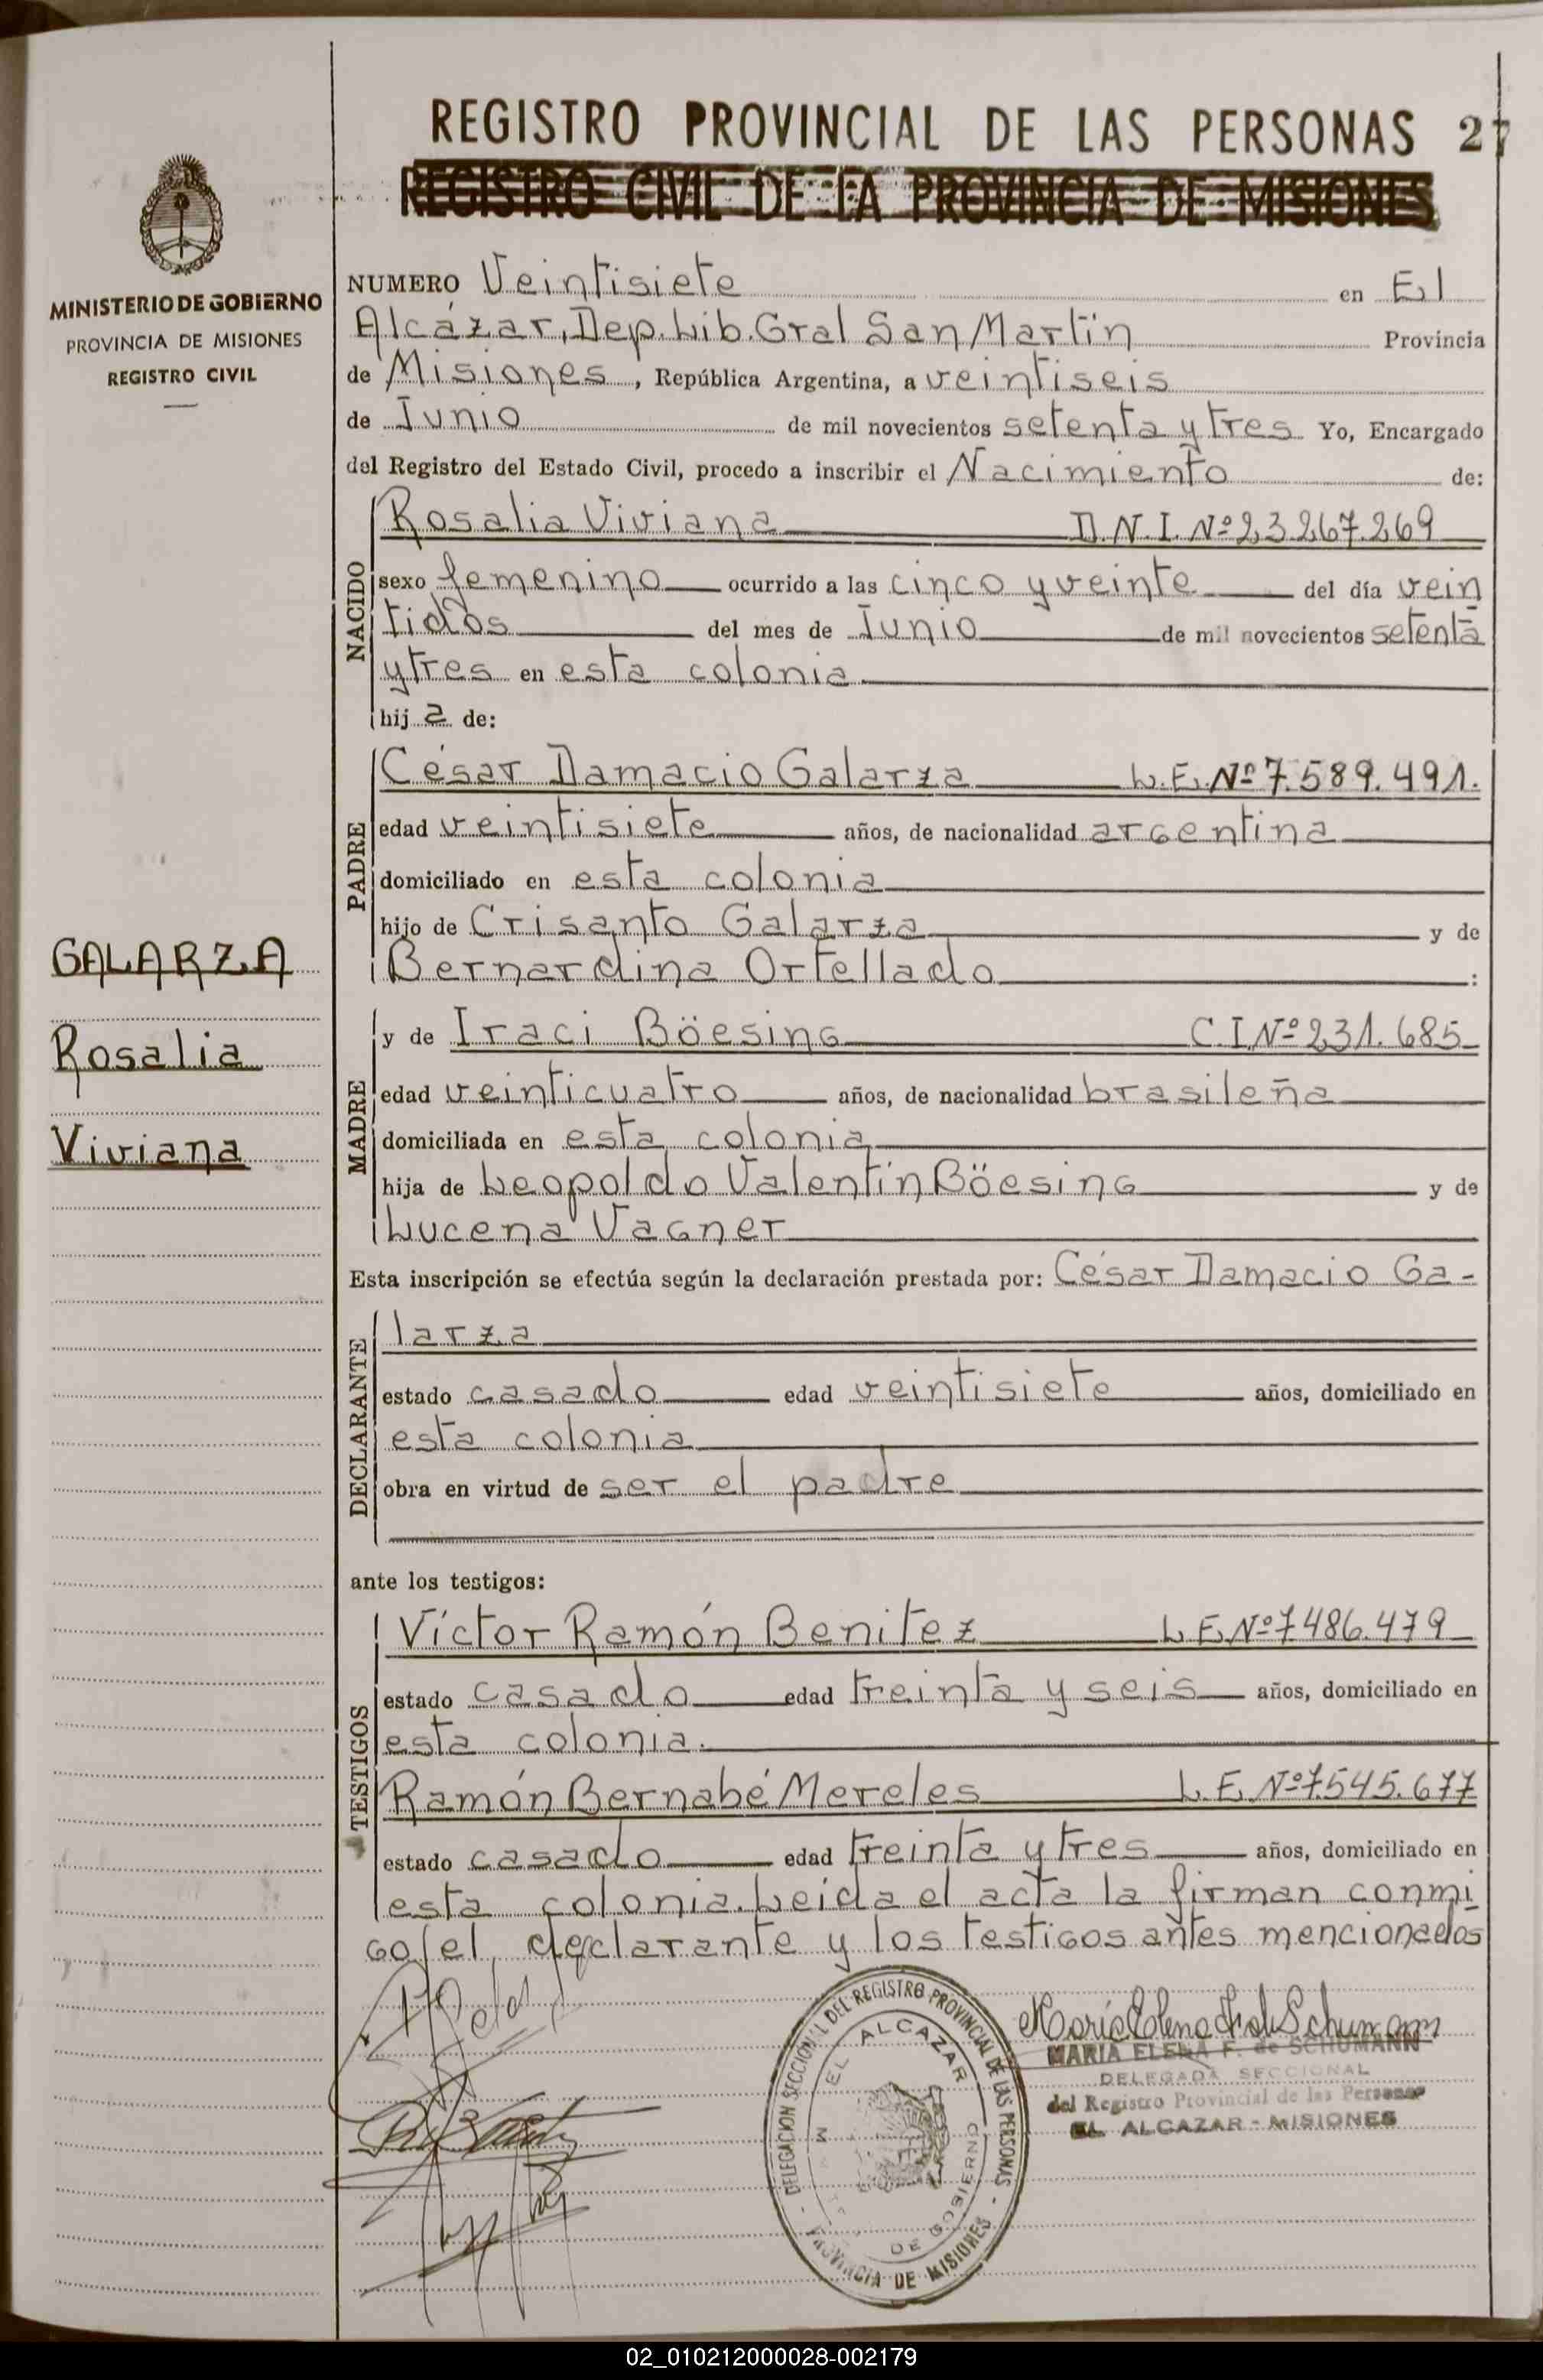 REGISTRO PROVINCIAL DE LAS PERSONAS 27
REGISTRO CIVIL DE LA PROVINCIA DE MISIONES
MINISTERIO DE GOBIERNO
PROVINCIA DE MISIONES
REGISTRO CIVIL
NUMERO Veintisiete en El
Alcázar, Dep. Lib. Gral San Martín Provincia
de Misiones, República Argentina, a veintiseis
de Junio de mil novecientos setenta y tres Yo, Encargado
del Registro del Estado Civil, procedo a inscribir el Nacimiento de:
NACIDO
Rosalia Viviana D.N.I. Nº 23.267.269
sexo femenino ocurrido a las cinco y veinte del día vein
tidós del mes de Junio de mil novecientos setenta
y tres en esta colonia
hij a de:
PADRE
César Damacio Galarza L.E. Nº 7.589.491.
edad veintisiete años, de nacionalidad argentina
domiciliado en esta colonia
hijo de Crisanto Galarza y de
Bernardina Ortellado :
GALARZA
Rosalia
Viviana
MADRE
y de Iraci Böesing C.I. Nº 231.685
edad veinticuatro años, de nacionalidad brasileña
domiciliada en esta colonia
hija de Leopoldo Valentín Böesing y de
Lucena Vagner
Esta inscripción se efectúa según la declaración prestada por: César Damacio Ga-
DECLARANTE
larza
estado casado edad veintisiete años, domiciliado en
esta colonia
obra en virtud de ser el padre
ante los testigos:
TESTIGOS
Víctor Ramón Benitez L.E. Nº 7.486.479
estado casado edad treinta y seis años, domiciliado en
esta colonia.
Ramón Bernabé Mereles L.E. Nº 7.545.677
estado casado edad treinta y tres años, domiciliado en
esta colonia. Leida el acta la firman conmi
go el declarante y los testigos antes mencionados
DELEGACION SECCIONAL DEL REGISTRO PROVINCIAL DE LAS PERSONAS - PROVINCIA DE MISIONES -
EL ALCAZAR
DE GOBIERNO
María Elena F. de Schumann
MARIA ELENA F. de SCHUMANN
DELEGADA SECCIONAL
del Registro Provincial de las Personas
EL ALCAZAR - MISIONES
02_010212000028-002179